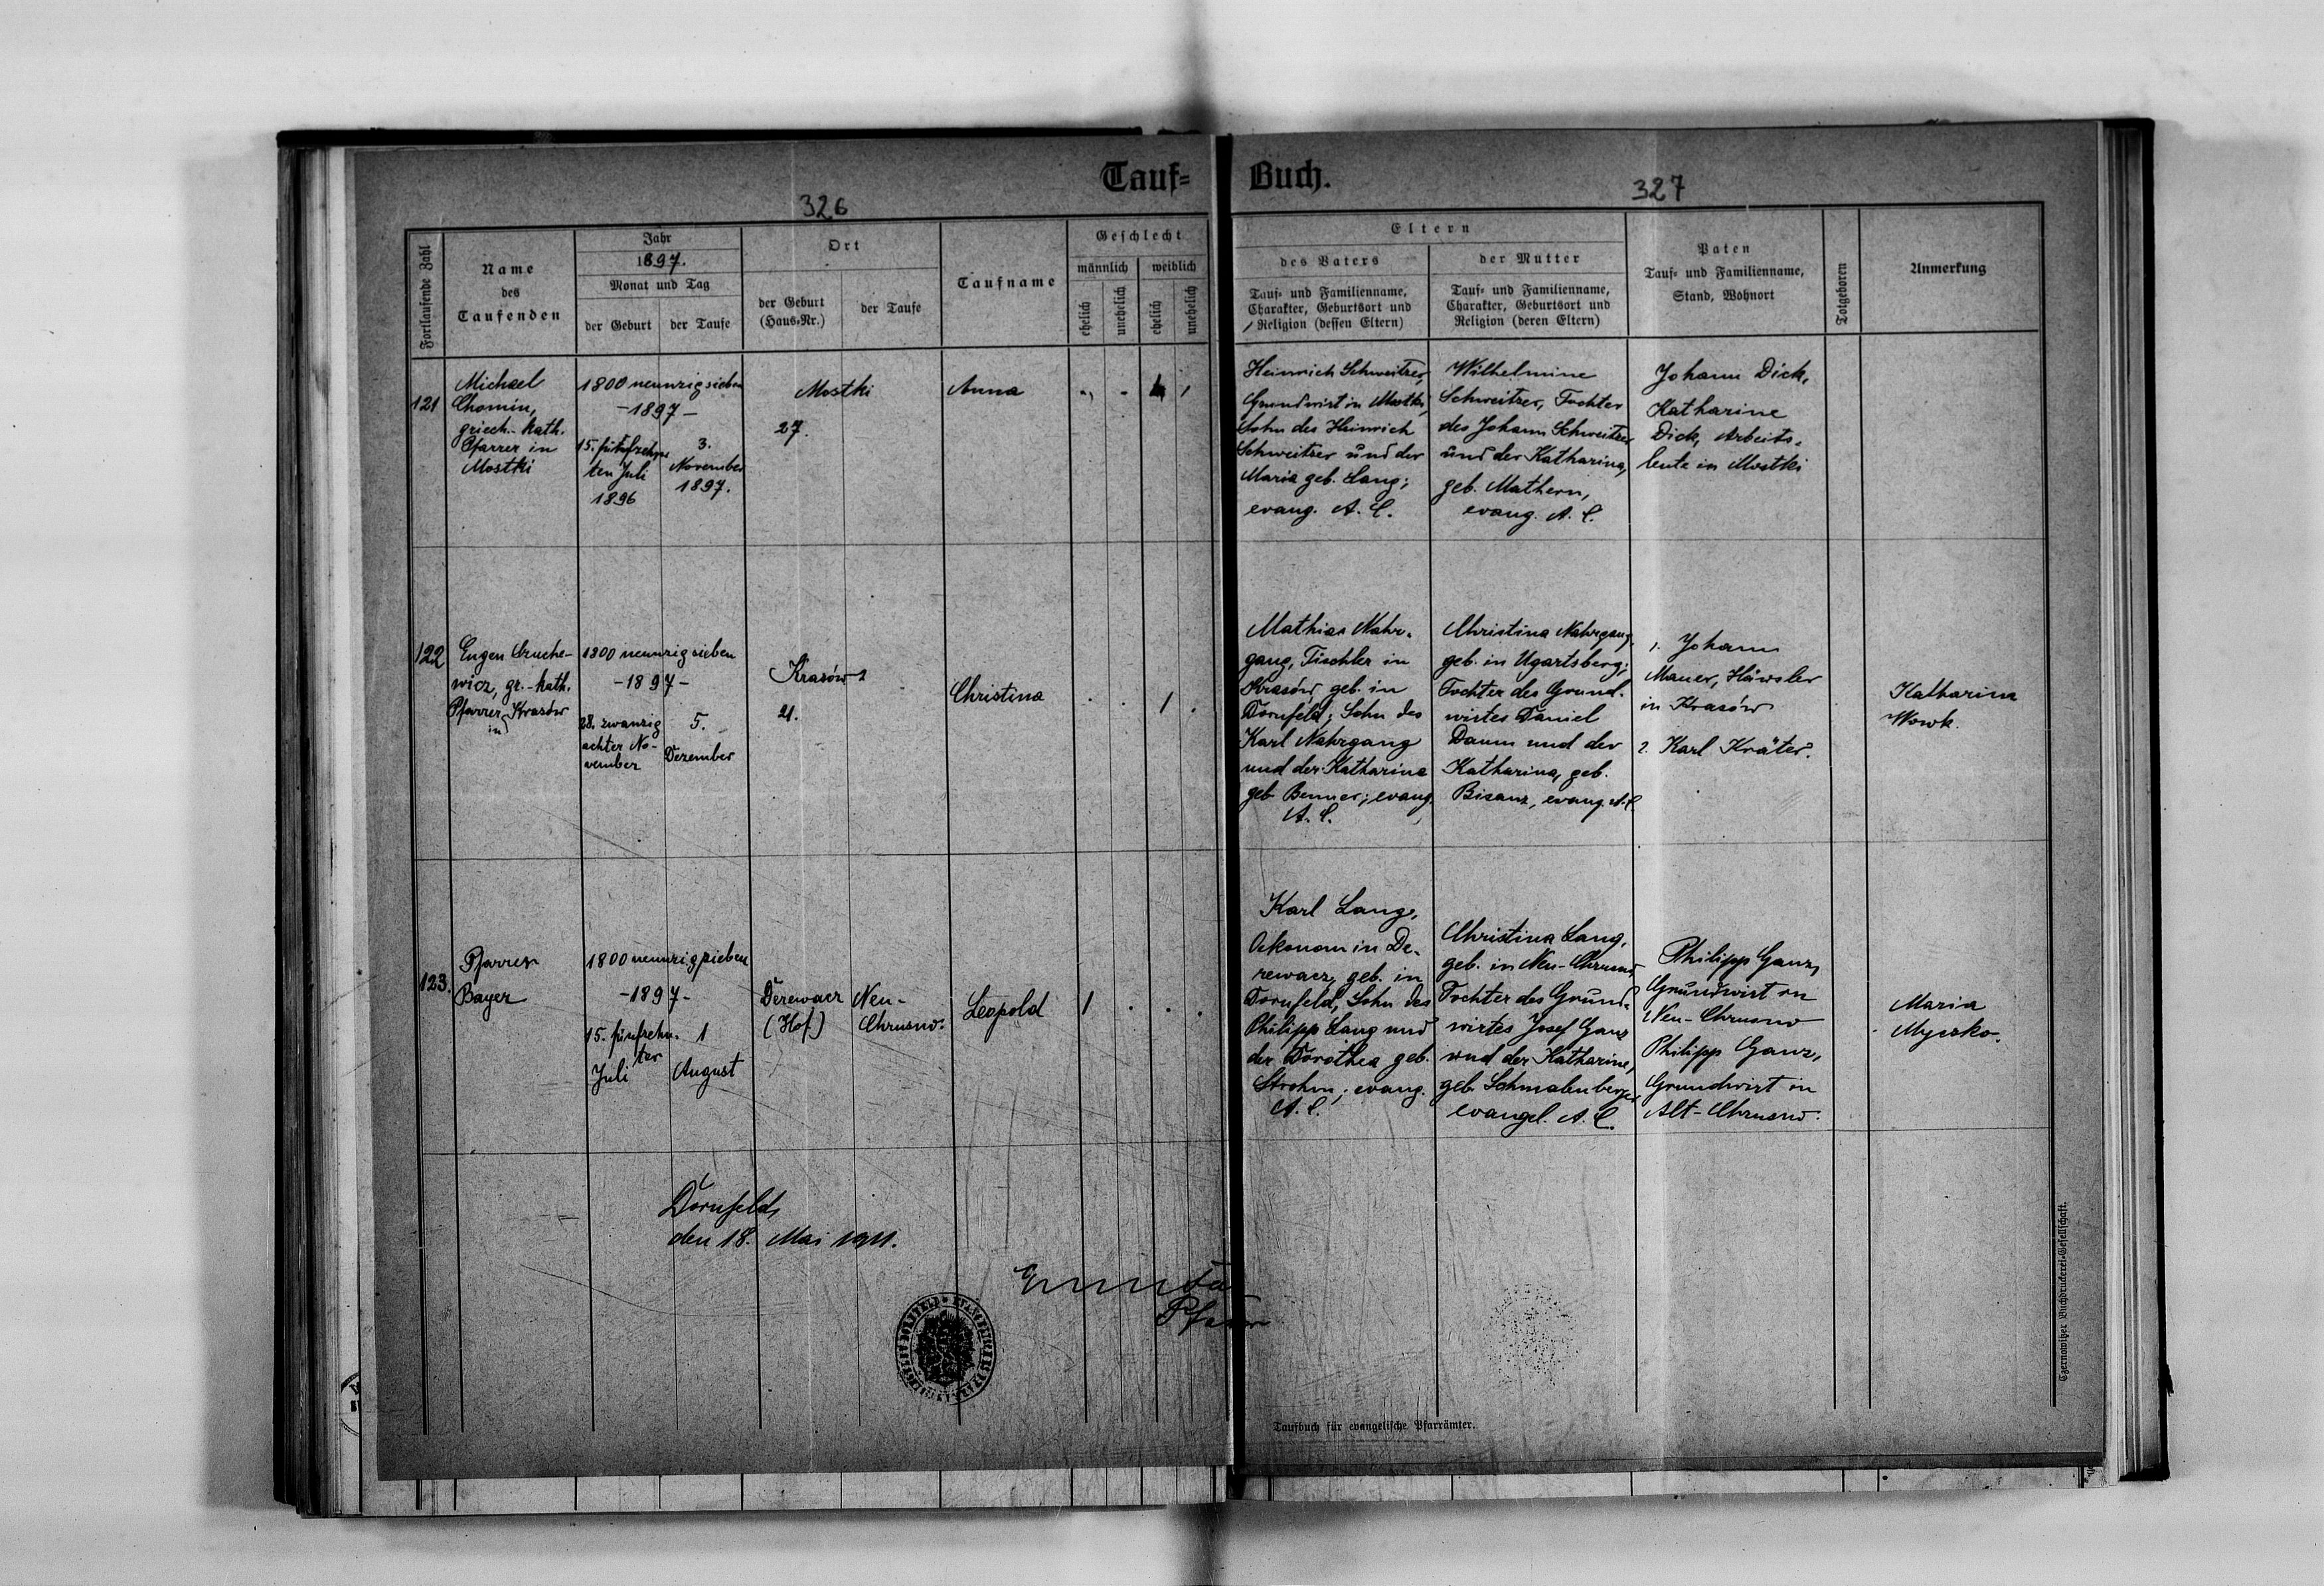 Tauf=
Buch.
326
327
Fortlaufende Zahl
Name
des
Taufenden
Jahr
1897.
Monat und Tag
der Geburt
der Taufe
Ort
der Geburt
(Haus=Nr.)
der Taufe
Taufname
Geschlecht
männlich
weiblich
ehelich
unehelich
ehelich
unehelich
Eltern
des Vaters
Tauf= und Familienname,
Charakter, Geburtsort und
Religion (dessen Eltern)
der Mutter
Tauf= und Familienname,
Charakter, Geburtsort und
Religion (deren Eltern)
Paten
Tauf= und Familienname,
Stand, Wohnort
Totgeboren
Anmerkung
121
Michael
Chomin,
griech.-kath.
Pfarrer in
Mostki
1800 neunzigsieben
-1897-
15. fünfzehn
ten Juli
1896
3.
November
1897.
Mostki
27.
Anna
Heinrich Schweitzer,
Grundwirt in Mostki,
Sohn des Heinrich
Schweitzer und der
Maria geb. Lang;
evang. A. C.
Wilhelmine
Schweitzer, Tochter
des Johann Schweitzer
und der Katharina,
geb. Mathern,
evang. A. C.
Johann Dick,
Katharine
Dick, Arbeits-
leute in Mostki
122
Eugen
wicz, gr.-kath.
Pfarrer in Krasów
1800 neunzigsieben
-1897-
28. zwanzig
achter No-
vember
5.
Dezember
Krasów
21.
Christina
Mathias Nahr-
gang, Tischler in
Krasów, geb. in
Dornfeld; Sohn des
Karl Nahrgang
und der Katharina
geb. Benner; evang.
A. C.
Christina Nahrgang,
geb. in Ugartsberg;
Tochter des Grund-
wirtes Daniel
Daum und der
Katharina, geb.
Bisanz, evang. A. C.
1. Johann
Mauer, Häusler
in Krasów
2. Karl Kräter.
Katharina
Wowk.
123.
Pfarrer
Bayer
1800 neunzigsieben
-1897-
15. fünfzehn-
ter
Juli
1
August
Derewacz
(Hof)
Neu-
Chrusno.
Leopold
1
Karl Lang,
Oekonom in De-
rewacz, geb. in
Dornfeld, Sohn des
Philipp Lang und
der Dorothea geb.
Strohm; evang.
A. C.
Christina Lang,
geb. in Neu-Chrusno
Tochter des Grund-
wirtes Josef Ganz
und der Katharine,
geb. Schmalenberger
evangel. A. C.
Philipp Ganz,
Grundwirt in
Neu-Chrusno
Philipp Ganz,
Grundwirt in
Alt-Chrusno.
Maria
Myczko.
Dornfeld,
den 18. Mai 1911.
Taufbuch für evangelische Pfarrämter.
Czernowitzer Buchdruckerei=Gesellschaft.